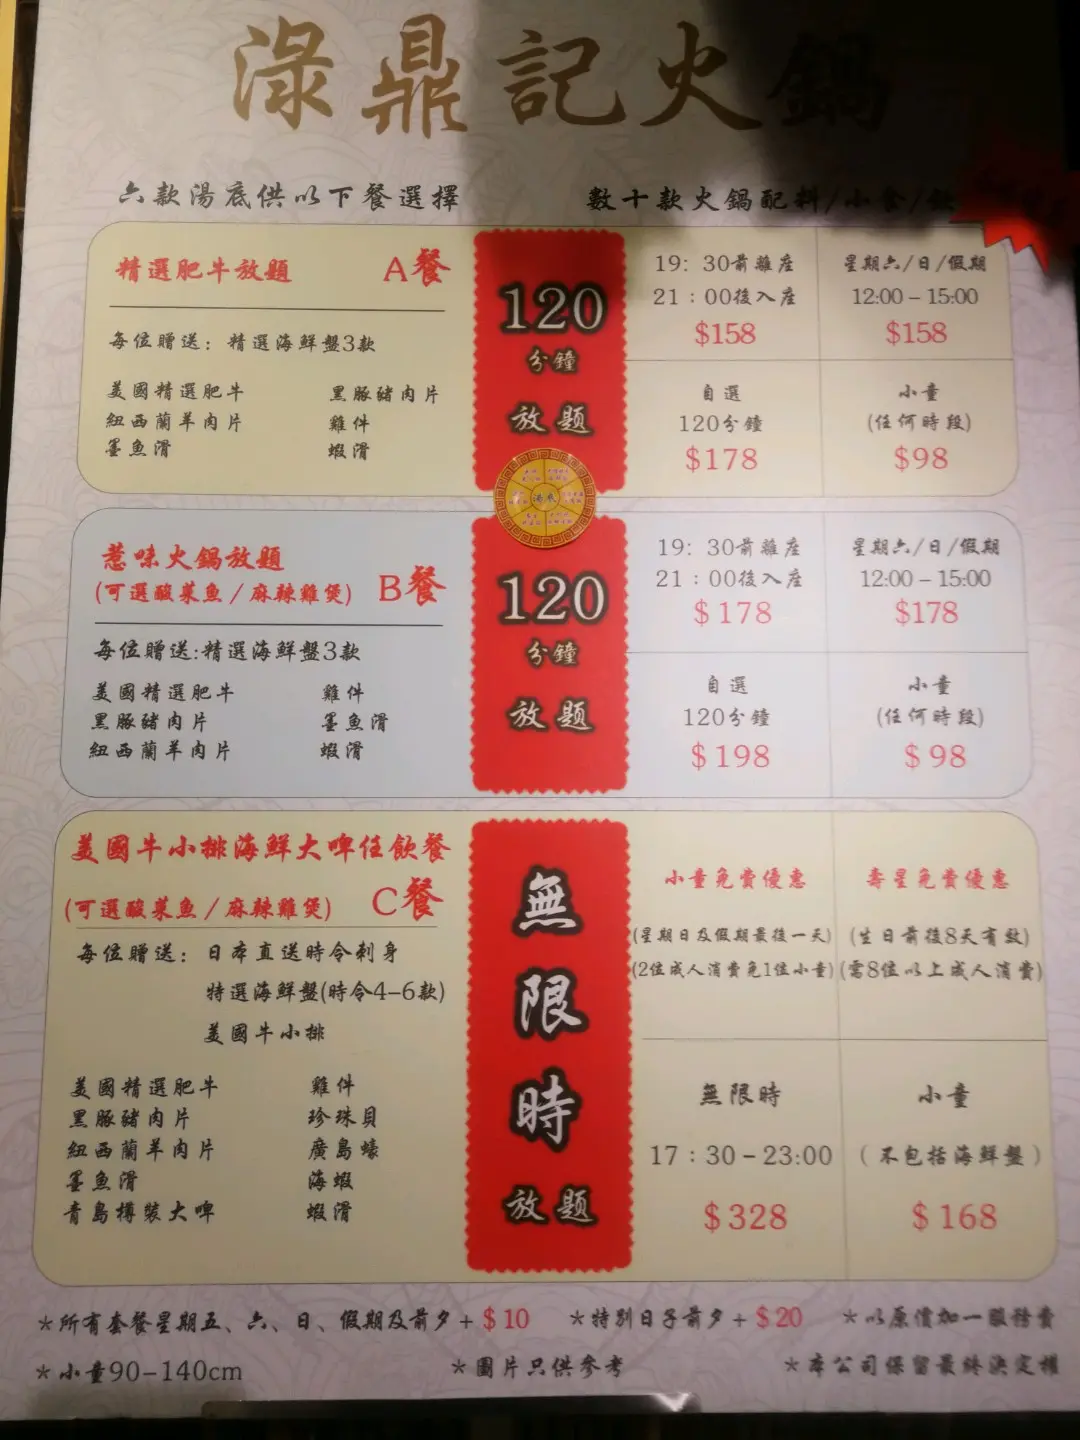 淥鼎記火鍋
六款湯底供以下餐選擇
數十款火鍋配料/小食/飲
精選肥牛放題 A餐
每位贈送：精選海鮮盤3款
美國精選肥牛 黑豚豬肉片
紐西蘭羊肉片 雞件
墨魚滑 蝦滑
120
分鐘
放題
19：30前離座
21：00後入座
$158
星期六/日/假期
12:00－15:00
$158
自選
120分鐘
$178
小童
(任何時段)
$98
湯底
惹味火鍋放題
(可選酸菜魚/麻辣雞煲) B餐
每位贈送:精選海鮮盤3款
美國精選肥牛 雞件
黑豚豬肉片 墨魚滑
紐西蘭羊肉片 蝦滑
120
分鐘
放題
19：30前離座
21：00後入座
$178
星期六/日/假期
12:00－15:00
$178
自選
120分鐘
$198
小童
(任何時段)
$98
美國牛小排海鮮大啤任飲餐
(可選酸菜魚/麻辣雞煲) C餐
每位贈送：日本直送時令刺身
特選海鮮盤(時令4-6款)
美國牛小排
美國精選肥牛 雞件
黑豚豬肉片 珍珠貝
紐西蘭羊肉片 廣島蠔
墨魚滑 海蝦
青島樽裝大啤 蝦滑
無限時
放題
小童免費優惠
(星期日及假期最後一天)
(2位成人消費免1位小童)
壽星免費優惠
(生日前後8天有效)
(需8位以上成人消費)
無限時
17：30－23:00
$328
小童
(不包括海鮮盤)
$168
*所有套餐星期五、六、日、假期及前夕+$10 *特別日子前夕+$20 *以原價加一服務費
*小童90-140cm *圖片只供參考 *本公司保留最終決定權